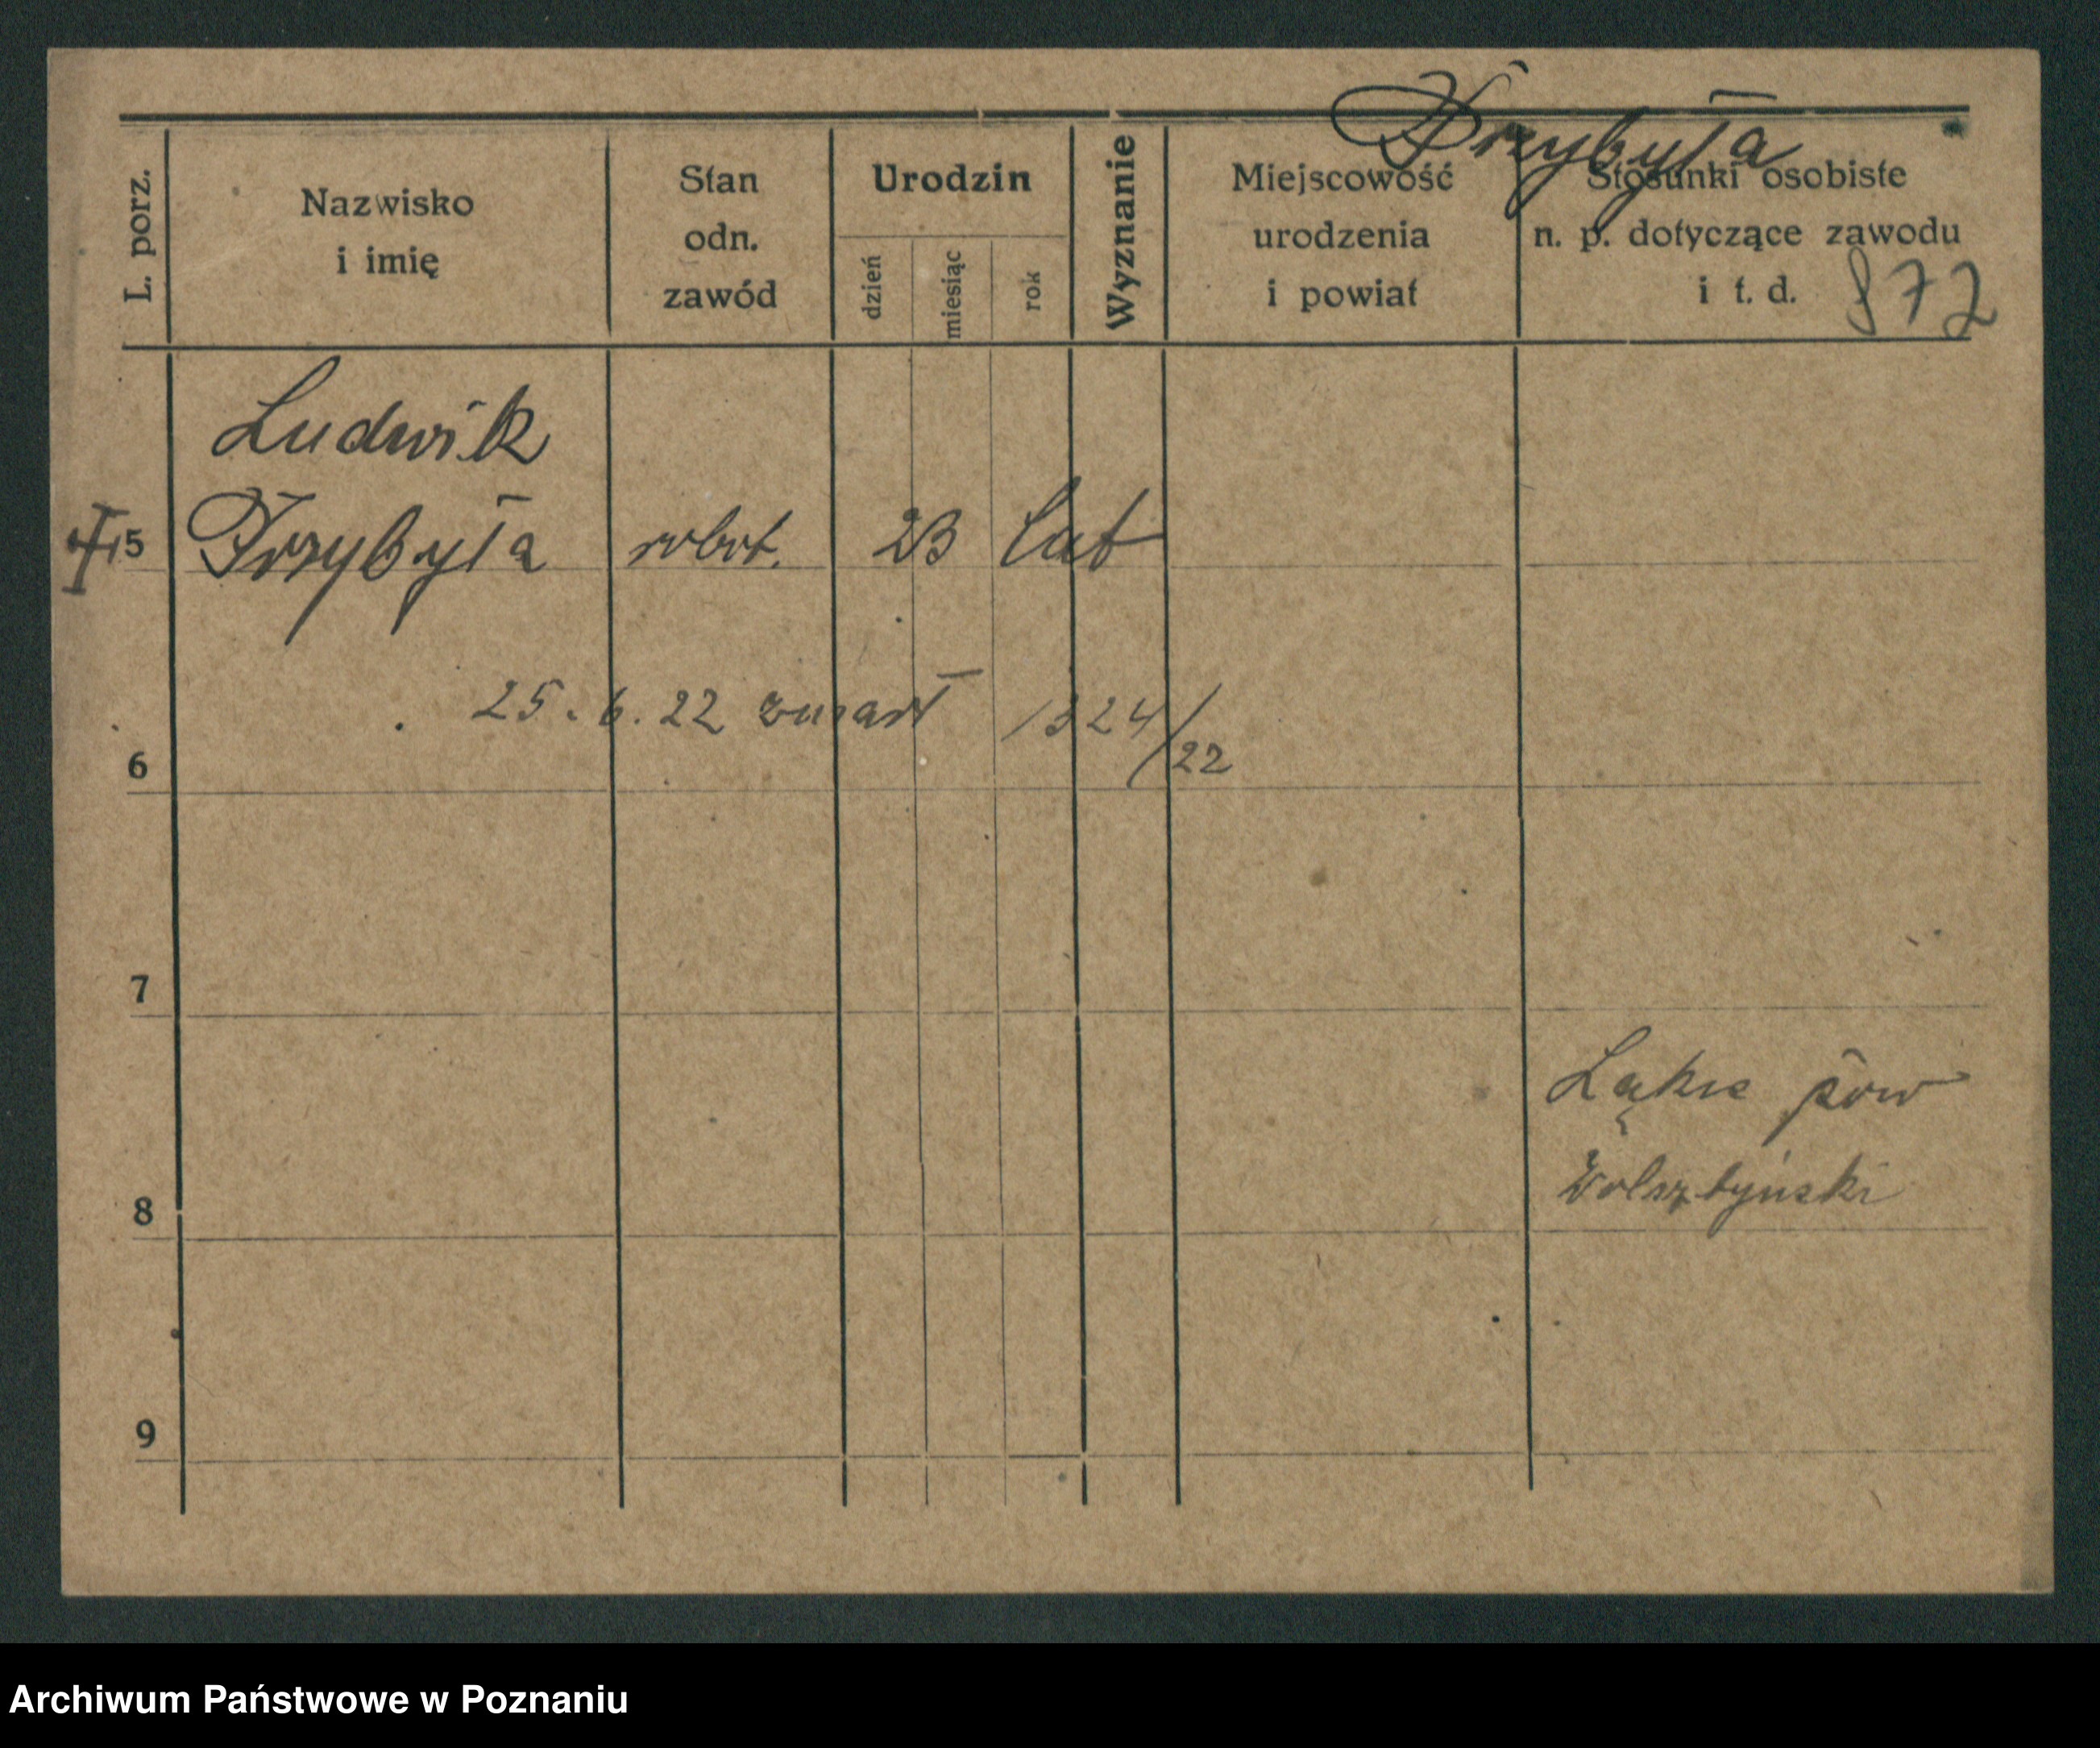 Przybyła
L. porz.
Nazwisko
i imię
Stan
odn.
zawód
Urodzin
dzień
miesiąc
rok
Wyznanie
Miejscowość
urodzenia
i powiat
Stosunki osobiste
n. p. dotyczące zawodu
i t. d.
872
Ludwik
5 Przybyła robot. 23 lat
25. 6. 22 zmarł 1324/22
6
7
Łąkie pow
Wolsztyński
8
9
Archiwum Państwowe w Poznaniu